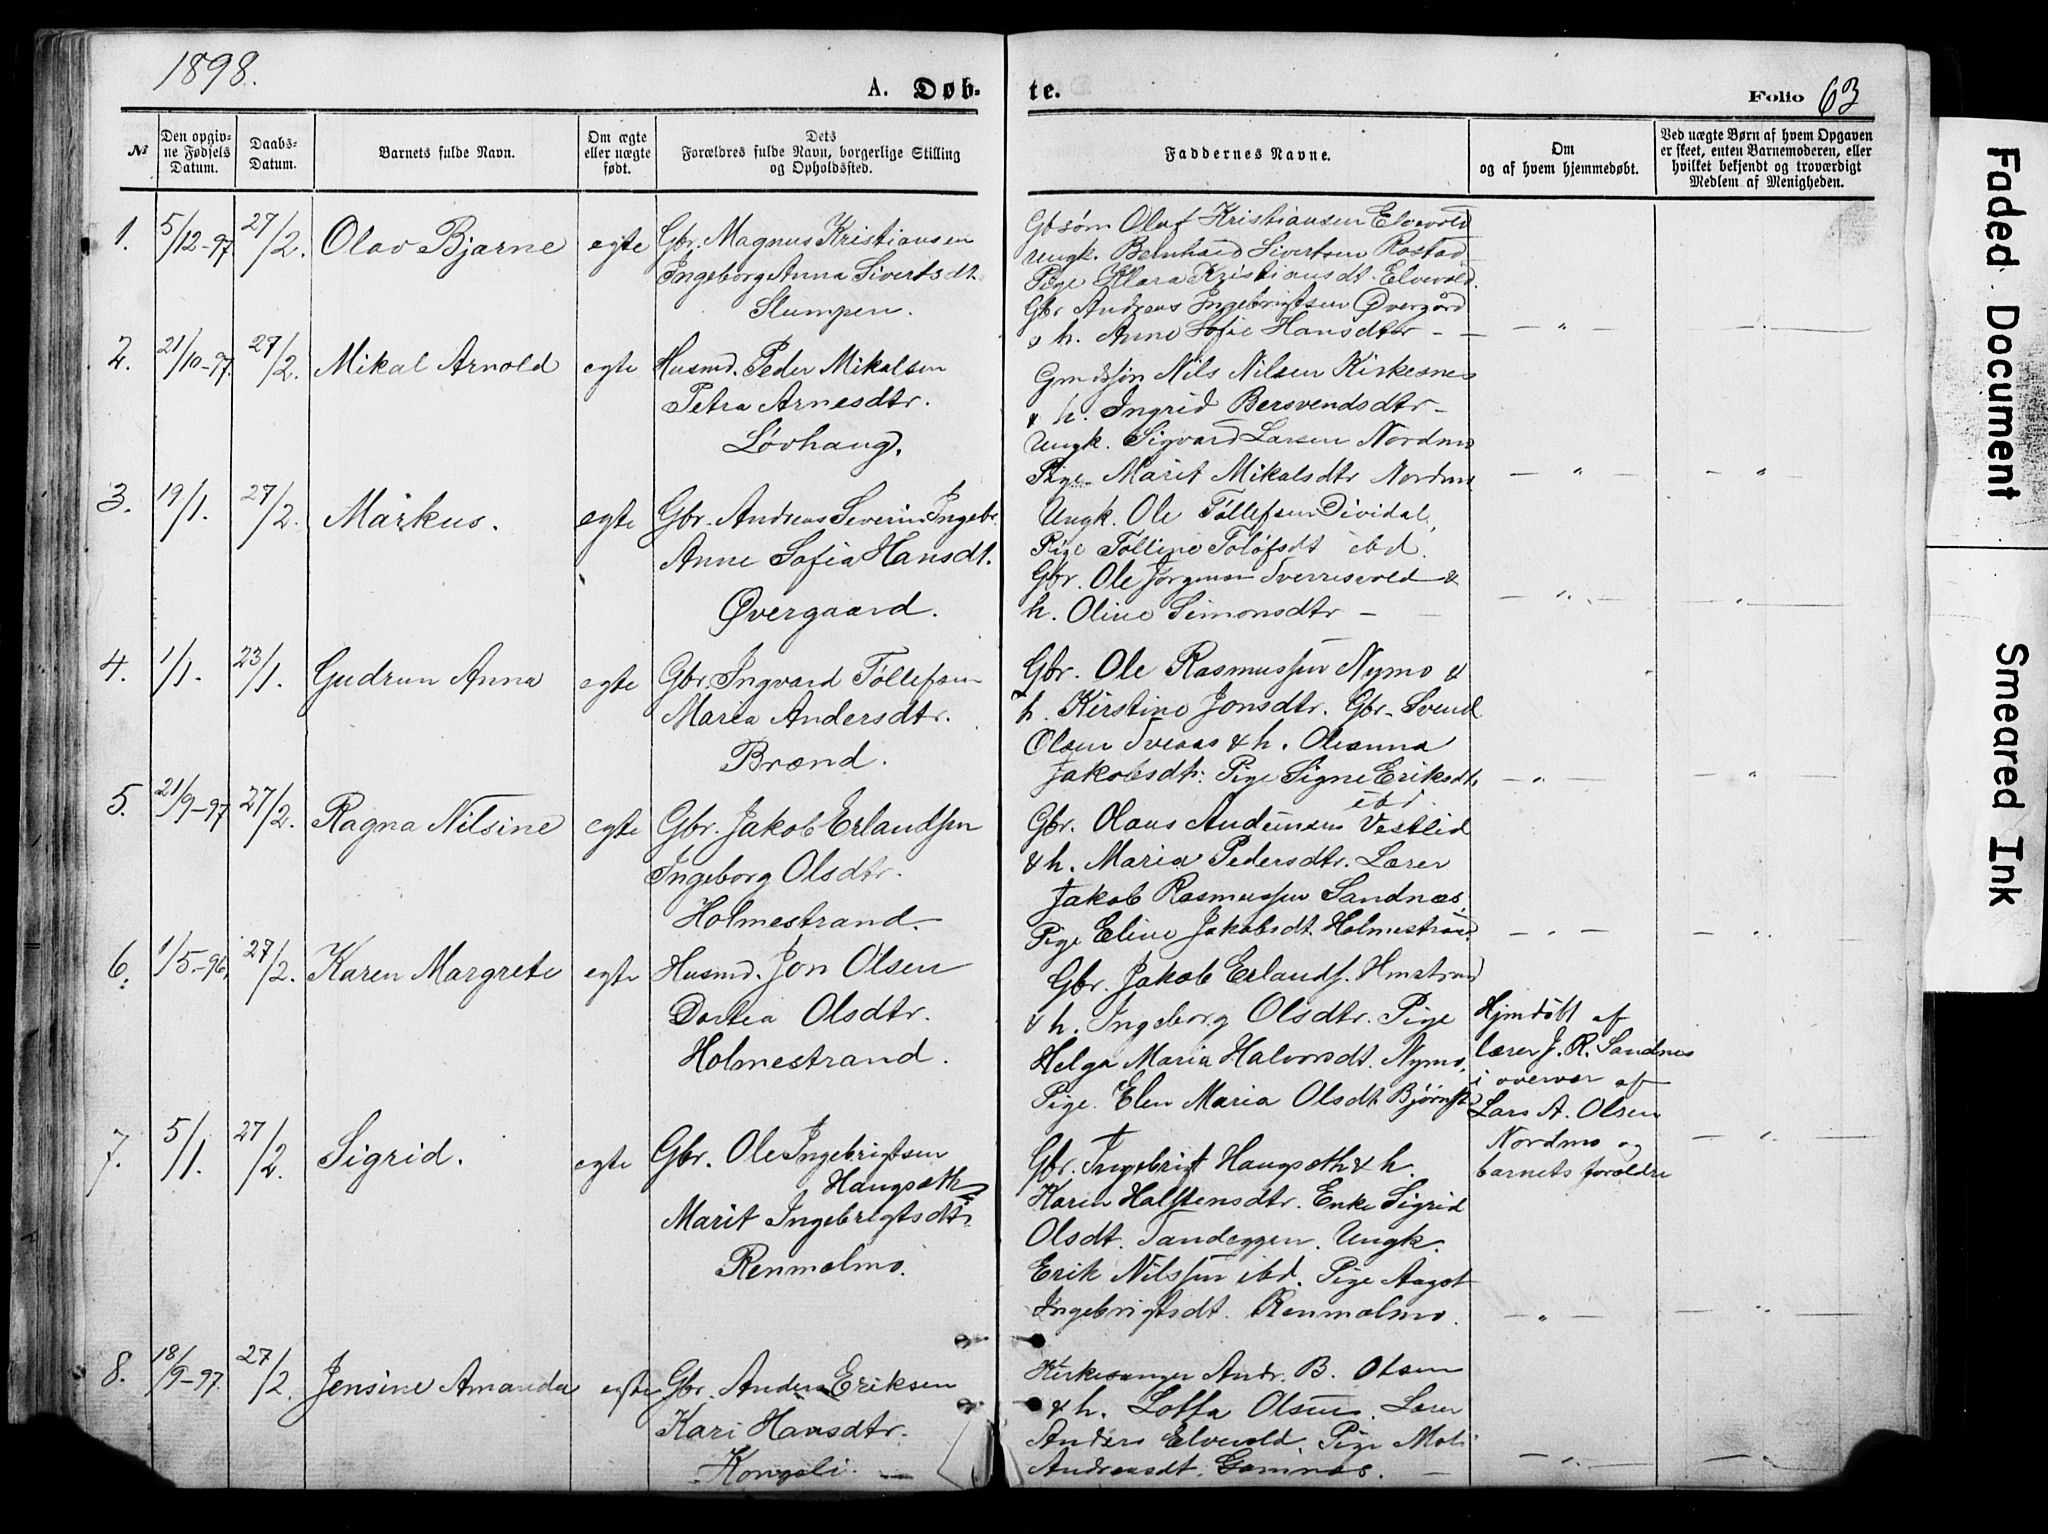 1898.
A. Døb-
te.
Folio 63
№
Den opgiv-
ne Fødsels
Datum.
Daabs-
Datum.
Barnets fulde Navn.
Om ægte
eller uægte
født.
Dets
Forældres fulde Navn, borgerlige Stilling
og Opholdssted.
Faddernes Navne.
Om
og af hvem hjemmedøbt.
Ved uægte Børn af hvem Opgaven
er skeet, enten Barnemoderen, eller
hvilket bekjendt og troværdigt
Medlem af Menigheden.
1. 5/12-97 27/2. Olav Bjarne egte Gbr. Magnus Kristiansen
Ingeborg Anna Sivertsdt.
Slumpen.
Gbsøn Olaf Kristiansen Elvevold
Ungk. Bernhard Sivertsen Rostad
Pige Klara Kristiansdt. Elvevold.
Gbr Andreas Ingebrigtsen Øvergård
& h. Anne Sofie Hansdtr -
— " — —
2. 21/10-97. 27/2. Mikal Arnold egte Husmd. Peder Mikalsen
Petra Arnesdtr.
Løvhaug.
Nils Nilsen Kirkesnes
& h. Ingrid Bersvendsdtr -
Ungk. Sigvard Larsen Nordmo
Pige Marit Mikalsdtr Nordmo
— " — — "
3. 19/1. 27/2. Markus. egte Gbr. Andreas Severin Ingebr.
Anne Sofia Hansdt.
Øvergaard.
Ungk. Ole Tollefsen Dividal,
Pige Tolline Tolofsdt ibd.
Gbr. Ole Jørgensen Sverresvold &
h. Oline Simonsdtr —
— " — — " —
4. 1/1. 23/1. Gudrun Anna egte Gbr. Ingvard Tollefsen
Maria Andersdtr.
Brænd.
Gbr. Ole Rasmussen Nymo &
h. Kirstine Jonsdtr. Gbr. Svend
Olsen Sveaas & h. Oleanna
Jakobsdt. Pige Signe Eriksdt.
ibd.
— " — — "
5. 21/9-97 27/2. Ragna Nilsine egte Gbr. Jakob Erlandsen
Ingeborg Olsdtr.
Holmestrand.
Gbr. Olaus Andersen Vestlid
& h. Maria Pedersdtr. Lærer
Jakob Rasmussen Sandnæs.
Pige Eline Jakobsdt. Holmestrand
— " — — " —
6. 1/5-96. 27/2. Karen Margrete egte Husmd. Jon Olsen
Dortea Olsdtr.
Holmestrand.
Gbr. Jakob Erlands. Hmstrand
& h. Ingeborg Olsdtr. Pige
Helga Maria Halvorsdt. Nymo,
Pige. Elen Maria Olsdt. Bjørnst
Hjmdøbt af
lærer J. R. Sandnes
i overvær af
Lars A. Olsen
Nordmo og
barnets forældre
— " —
7. 5/1. 27/2 Sigrid. egte Gbr. Ole Ingebrigtsen
Haugsæth
Marit Ingebrigtsdt.
Renmælmo.
Gbr. Ingebrigt Haugsæth & h.
Karen Halstensdtr. Enke Sigrid
Olsdt. Tandeggen. Ungk.
Erik Nilssen ibd. Pige Aagot
Ingebrigtsdt. Renmælmo.
— " — — "
8. 18/9-97. 27/2. Jensine Amanda egte Gbr. Anders Eriksen
Kari Hansdtr.
Kongsli. —
Kirkesanger Andr. B. Olsen
& h. Lotta Olsen. Lærer
Anders Elvevold. Pige
Andreasdt. Gamnæs. —
— " — — " —
Faded Document
Smeared Ink